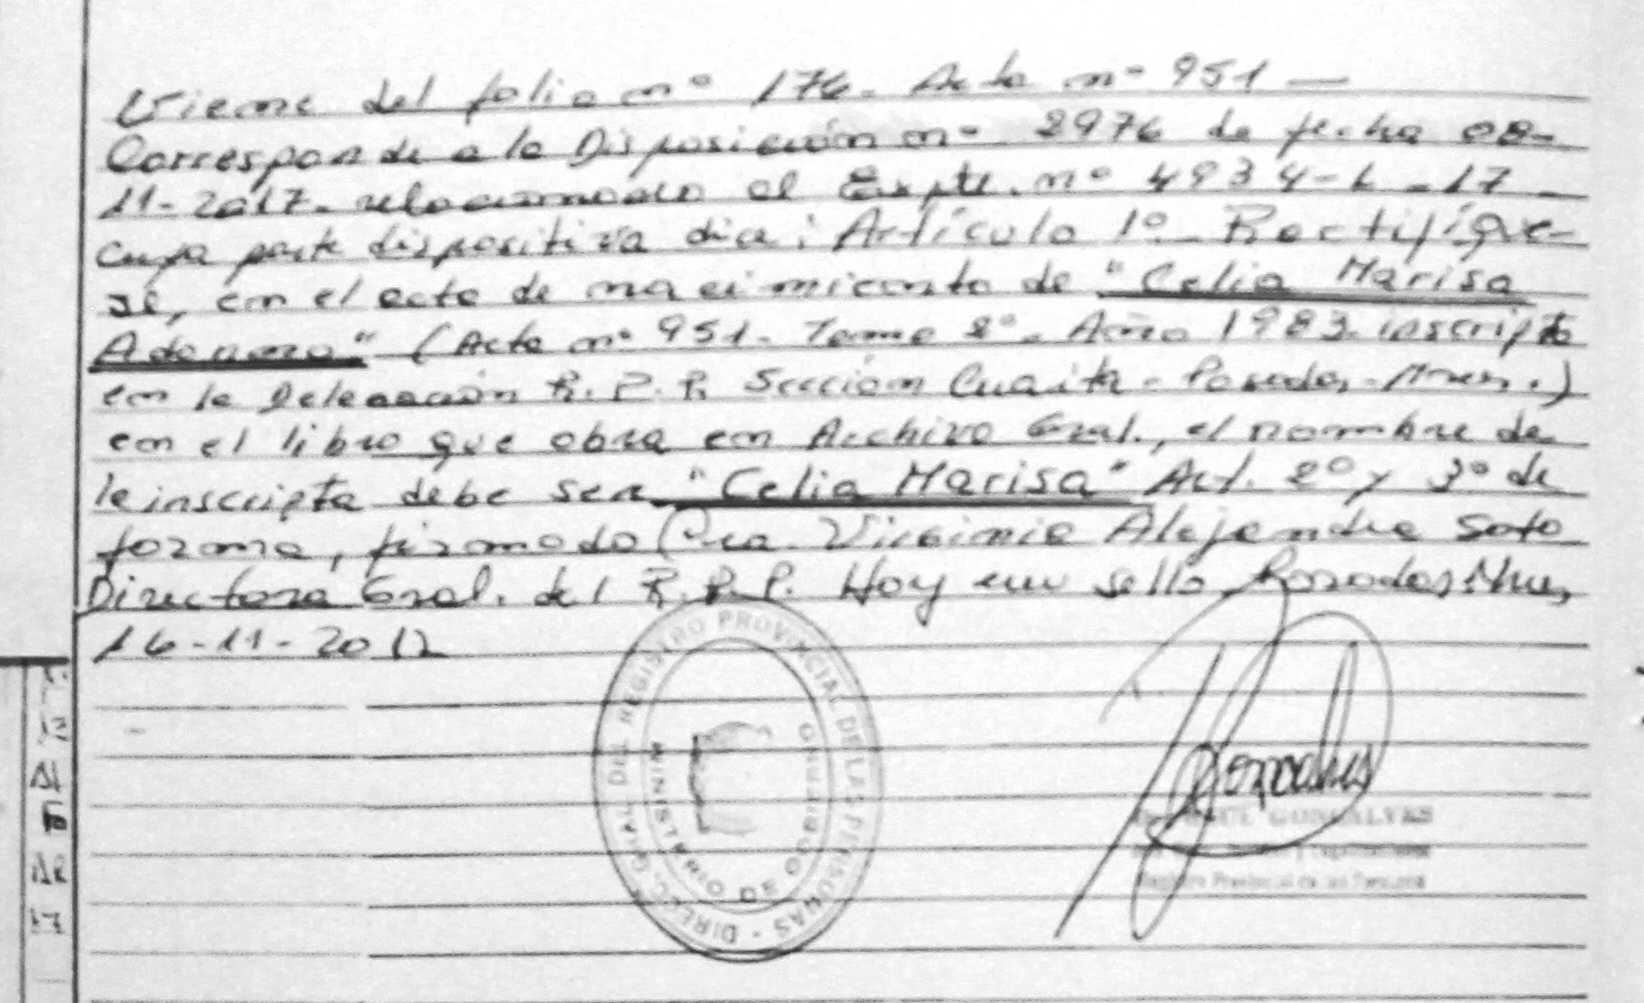 Viene del folio nº 176. Acta nº 951 —
Corresponde a la Disposición nº 2976 de fecha 08-
11-2017. relacionado al Expte. nº 4934-L-17-
cuya parte dispositiva dice: Artículo 1º_ Rectifíque-
se, en el acta de nacimiento de "Celia Marisa
Adonara" (Acta nº 951. Tomo 2º. Año 1983. inscripta
en la Delegación R.P.P. Sección Cuarta - Posadas, Mnes.)
en el libro que obra en Archivo Gral., el nombre de
la inscripta debe ser "Celia Marisa" Art. 2º y 3º de
forma, firmado Dra. Virginia Alejandra Soto
Directora Gral. del R.P.P. Hay un sello Posadas, Mnes,
16-11-2017
DIREC. GRAL DEL REGISTRO PROVINCIAL DE LAS PERSONAS -
MINISTERIO DE GOBIERNO
GONCALVES
Registro Provincial de las Personas